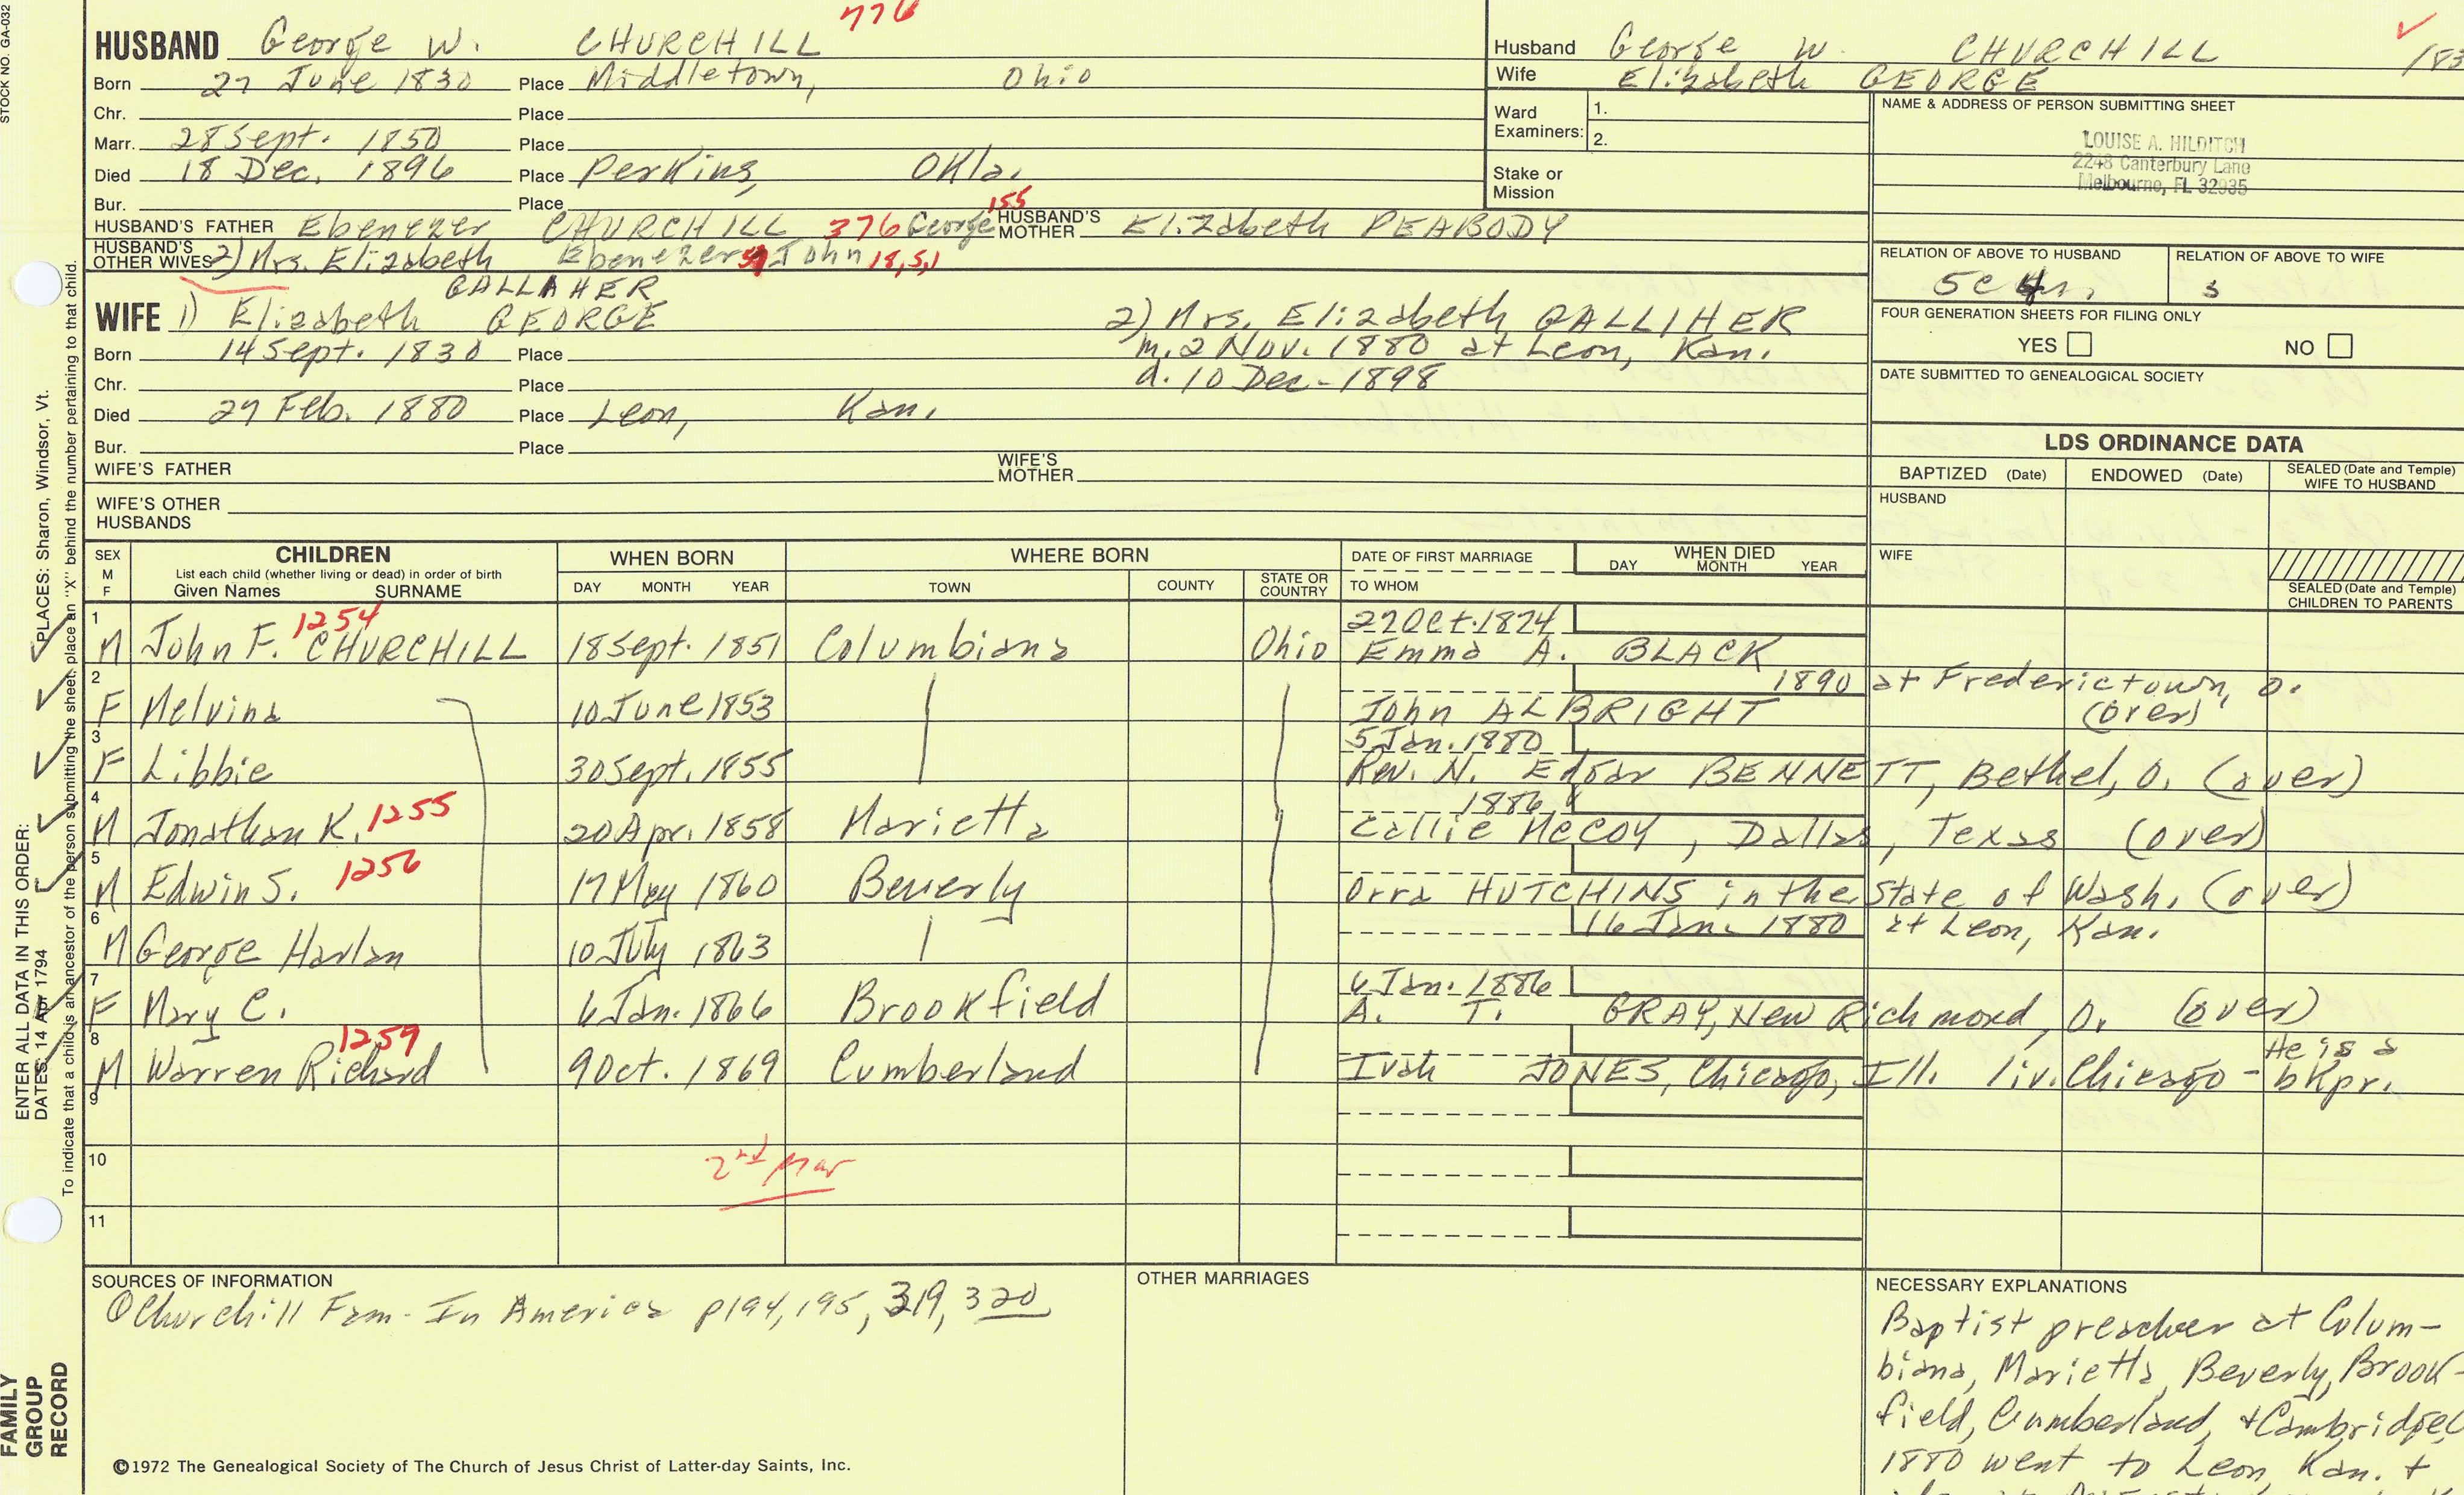 STOCK NO. GA-032
776
HUSBAND George W. CHURCHILL
Born 27 June 1830 Place Middletown, Ohio
Chr. Place
Marr. 28 Sept. 1850 Place
Died 18 Dec. 1896 Place Perkins, Okla.
Bur. Place
HUSBAND'S FATHER Ebenezer CHURCHILL 376 George 155 HUSBAND'S MOTHER Elizabeth PEABODY
HUSBAND'S OTHER WIVES 2) Mrs. Elizabeth GALLAHER Ebenezer John 18,5,1
WIFE 1) Elizabeth GEORGE
2) Mrs. Elizabeth GALLIHER
Born 14 Sept. 1830 Place
m. 2 Nov. 1880 at Leon, Kan.
Chr. Place
d. 10 Dec - 1898
Died 29 Feb. 1880 Place Leon, Kan.
Bur. Place
WIFE'S FATHER WIFE'S MOTHER
WIFE'S OTHER HUSBANDS
Husband George W. CHURCHILL
Wife Elizabeth GEORGE
Ward Examiners: 1.
2.
Stake or Mission
NAME & ADDRESS OF PERSON SUBMITTING SHEET
LOUISE A. HILDITCH
2248 Canterbury Lane
Melbourne, FL 32935
RELATION OF ABOVE TO HUSBAND RELATION OF ABOVE TO WIFE
5c
FOUR GENERATION SHEETS FOR FILING ONLY
YES NO
DATE SUBMITTED TO GENEALOGICAL SOCIETY
LDS ORDINANCE DATA
BAPTIZED (Date) ENDOWED (Date) SEALED (Date and Temple) WIFE TO HUSBAND
HUSBAND
WIFE
SEALED (Date and Temple) CHILDREN TO PARENTS
SEX M F
CHILDREN
List each child (whether living or dead) in order of birth
Given Names SURNAME
WHEN BORN
DAY MONTH YEAR
WHERE BORN
TOWN COUNTY STATE OR COUNTRY
DATE OF FIRST MARRIAGE
TO WHOM
WHEN DIED
DAY MONTH YEAR
1 M John F. CHURCHILL 1254 18 Sept. 1851 Columbiana Ohio 27 Oct. 1874 Emma A. BLACK
2 F Melvina 10 June 1853 John ALBRIGHT 1890 at Fredericktown, O. (over)
3 F Libbie 30 Sept. 1855 5 Jan. 1880 Rev. N. Edgar BENNETT, Bethel, O. (over)
4 M Jonathan K. 1255 20 Apr. 1858 Marietta 1886 Callie McCOY, Dallas, Texas (over)
5 M Edwin S. 1256 17 May 1860 Beverly Orra HUTCHINS in the State of Wash. (over)
6 M George Harlan 10 July 1863 16 Jan. 1880 at Leon, Kan.
7 F Mary C. 6 Jan. 1866 Brookfield 6 Jan. 1886 A. T. GRAY, New Richmond, O. (over)
8 M Warren Richard 1259 9 Oct. 1869 Cumberland Ivah JONES, Chicago, Ill. liv. Chicago - He is a bkpr.
9
10
2nd Mar
11
SOURCES OF INFORMATION
① Churchill Fam. In America p194, 195, 319, 320
OTHER MARRIAGES
NECESSARY EXPLANATIONS
Baptist preacher at Colum-
biana, Marietta, Beverly, Brook-
field, Cumberland, + Cambridge
1880 went to Leon, Kan. +
©1972 The Genealogical Society of The Church of Jesus Christ of Latter-day Saints, Inc.
ENTER ALL DATA IN THIS ORDER: PLACES: Sharon, Windsor, Vt.
DATES: 14 Apr 1794
To indicate that a child is an ancestor of the person submitting the sheet, place an "X" behind the number pertaining to that child.
FAMILY GROUP RECORD